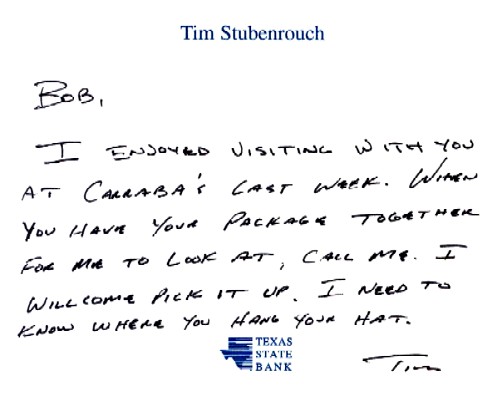 Tim Stubenrouch
BOB,
I ENJOYED VISITING WITH YOU
AT CARRABA'S LAST WEEK. WHEN
YOU HAVE YOUR PACKAGE TOGETHER
FOR ME TO LOOK AT, CALL ME. I
WILL COME PICK IT UP. I NEED TO
KNOW WHERE YOU HANG YOUR HAT.
TEXAS
STATE
BANK
Tim